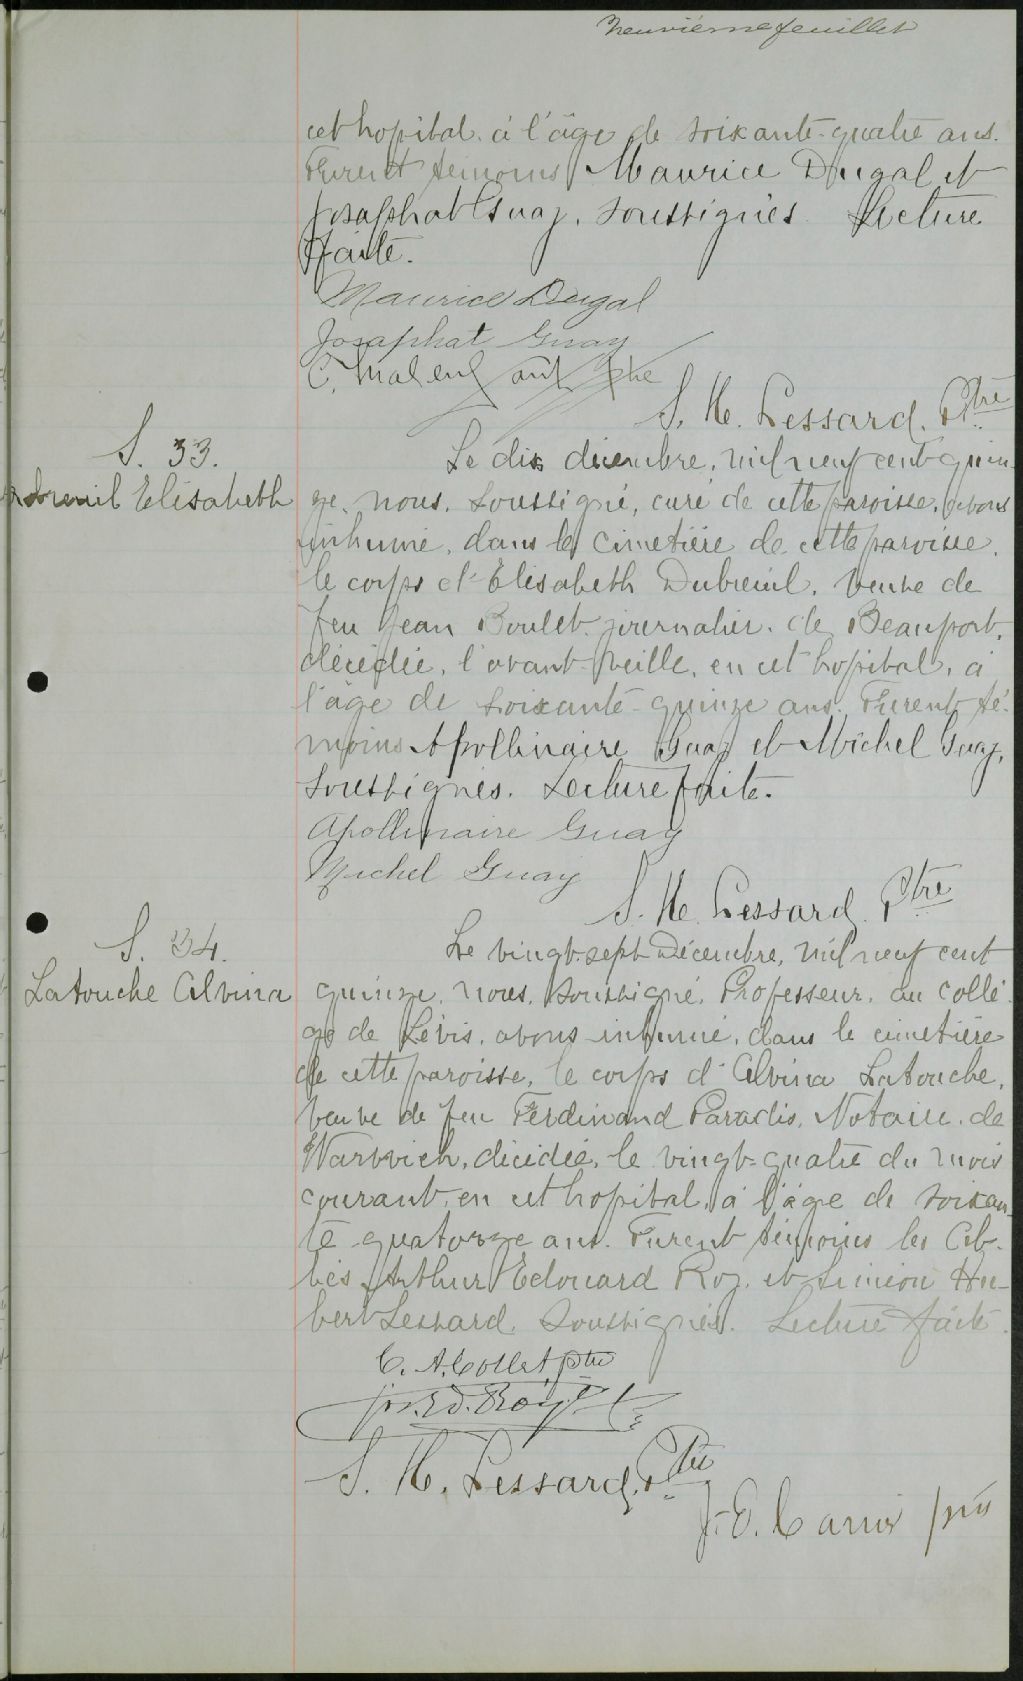 Neuvième feuillet
cet hopital, à l'âge de soixante-quatre ans.
Furent témoins Maurice Dugal et
Josaphat Guay, soussignés. Lecture
faite.
Maurice Dugal
Josaphat Guay
C. Malenfant ptre
S. H. Lessard, Ptre
S. 33.
Dubreuil Elisabeth
Le dix décembre, mil neuf cent quin-
ze, nous, soussigné, curé de cette paroisse, avons
inhumé, dans le cimetière de cette paroisse,
le corps d'Elisabeth Dubreuil, veuve de
feu Jean Boulet, journalier, de Beauport,
décédée, l'avant-veille, en cet hopital, à
l'âge de soixante-quinze ans. Furent té-
moins Apollinaire Guay et Michel Guay,
soussignés. Lecture faite.
Apollinaire Guay
Michel Guay
S. H. Lessard, Ptre
S. 34.
Latouche Alvina
Le vingt-sept Décembre, mil neuf cent
quinze, nous, soussigné, Professeur, au collè-
ge de Lévis, avons inhumé, dans le cimetière
de cette paroisse, le corps d'Alvina Latouche,
veuve de feu Ferdinand Paradis, Notaire, de
Warwick, décédée, le vingt-quatre du mois
courant, en cet hopital, à l'âge de soixan-
te-quatorze ans. Furent témoins les Ab-
bés Arthur Edouard Roy, et Siméon Hu-
bert Lessard, soussignés. Lecture faite.
C. A. Collet ptre
Jos. Ed. Roy, ptre
S. H. Lessard, Ptre
J. E. Carrier ptre